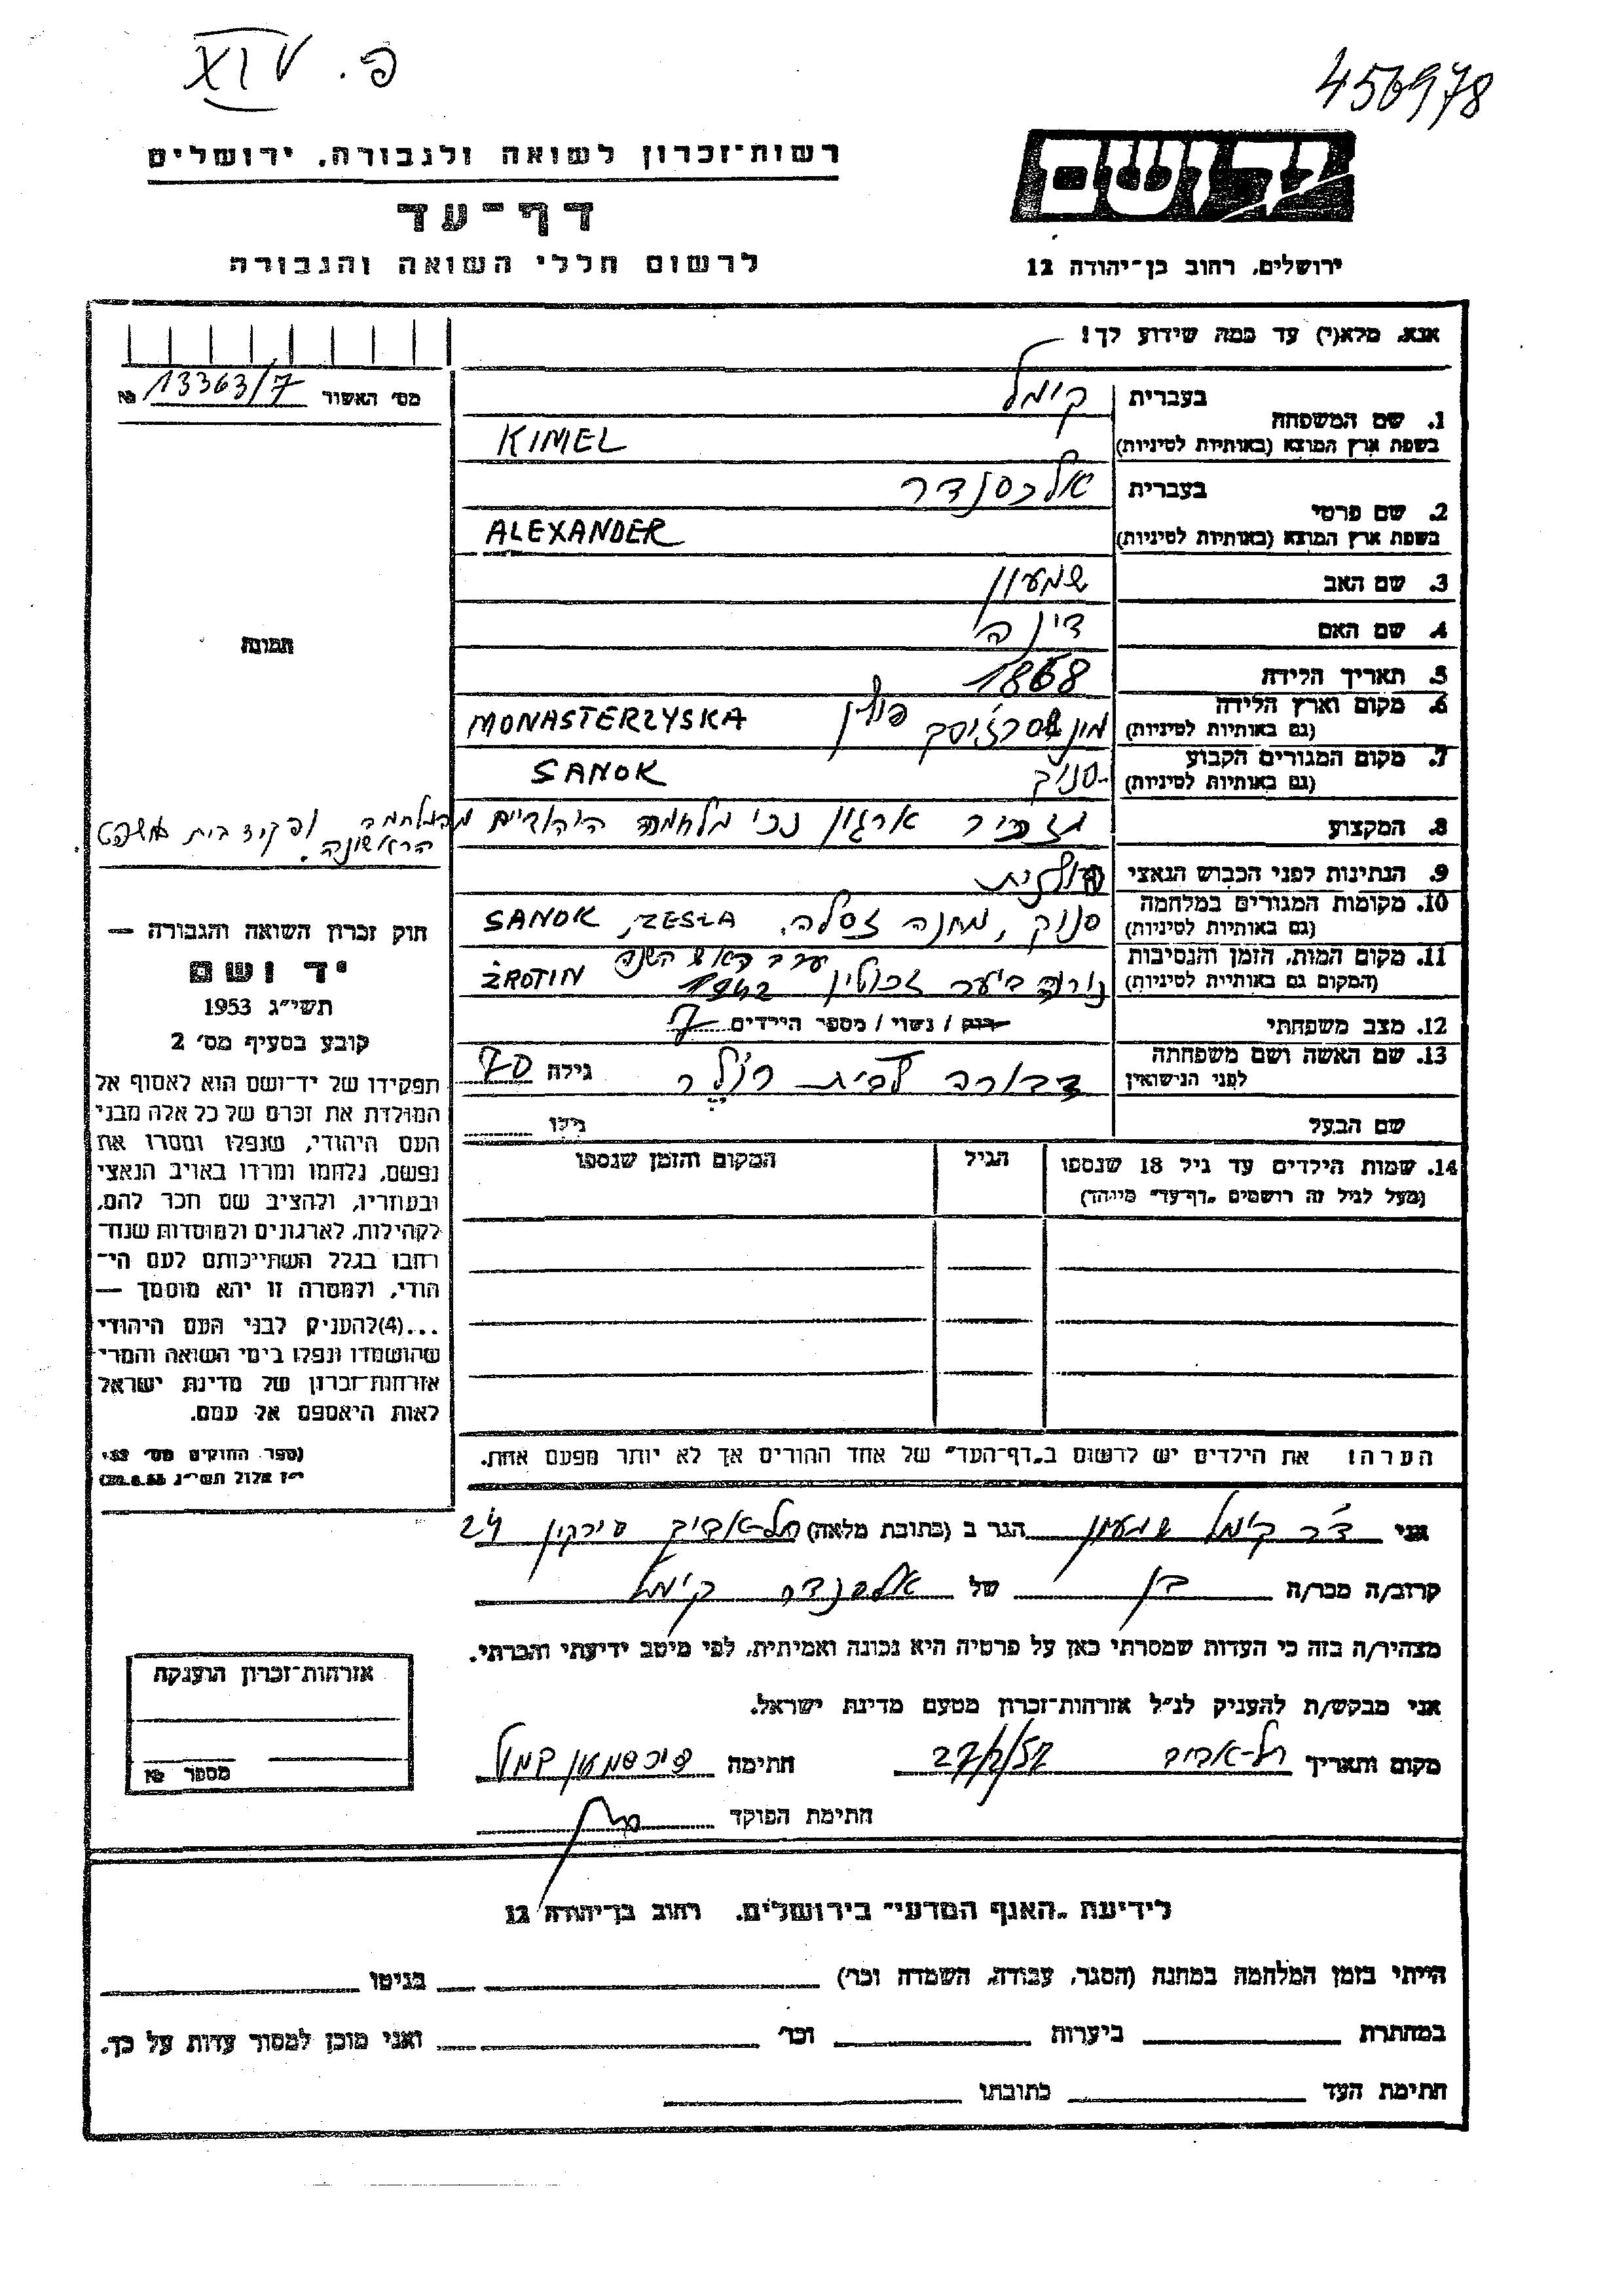 פ. XIV
456978
רשות־זכרון לשואה ולגבורה, ירושלים
יד ושם
דף־עד
לרשום חללי השואה והגבורה
ירושלים, רחוב בן־יהודה 12
אנא, מלא(י) עד כמה שידוע לך!
מס' האשור 13363/7 №
1. שם המשפחה בעברית קימל
בשפת ארץ המוצא (באותיות לטיניות) KIMEL
2. שם פרטי בעברית אלכסנדר
בשפת ארץ המוצא (באותיות לטיניות) ALEXANDER
3. שם האב שמעון
4. שם האם דינה
תמונה
5. תאריך הלידה 1868
6. מקום וארץ הלידה (גם באותיות לטיניות) פולין MONASTERZYSKA
7. מקום המגורים הקבוע (גם באותיות לטיניות) סנוק SANOK
8. המקצוע מזכיר ארגון נכי מלחמה היהודיים מהמלחמה הראשונה. ופקיד בית משפט
9. הנתינות לפני הכבוש הנאצי פולנית
10. מקומות המגורים במלחמה (גם באותיות לטיניות) סנוק, מחנה זסלה, SANOK, ZESŁA
11. מקום המות, הזמן והנסיבות (המקום גם באותיות לטיניות) נורה ביער זרוטין ערב ראש השנה 1942 ŻROTIN
12. מצב משפחתי רווק / נשוי / מספר הילדים 7
13. שם האשה ושם משפחתה לפני הנישואין דבורה לבית רולר גילה 70
שם הבעל גילו
14. שמות הילדים עד גיל 18 שנספו הגיל המקום והזמן שנספו
(מעל לגיל זה רושמים „דף־עד" מיוחד)
הערה: את הילדים יש לרשום ב„דף־העד" של אחד ההורים אך לא יותר מפעם אחת.
חוק זכרון השואה והגבורה —
יד ושם
תשי״ג 1953
קובע בסעיף מס' 2
תפקידו של יד־ושם הוא לאסוף אל
המולדת את זכרם של כל אלה מבני
העם היהודי, שנפלו ומסרו את
נפשם, נלחמו ומרדו באויב הנאצי
ובעוזריו, ולהציב שם וזכר להם,
לקהילות, לארגונים ולמוסדות שנח־
רבו בגלל השתייכותם לעם הי־
הודי, ולמטרה זו יהא מוסמך —
...(4)להעניק לבני העם היהודי
שהושמדו ונפלו בימי השואה והמרי
אזרחות־זכרון של מדינת ישראל
לאות היאספם אל עמם.
(ספר החוקים מס' 132,
י״ז אלול תשי״ג 28.8.53)
אני ד״ר קימל שמעון הגר ב (כתובת מלאה) תל־אביב סירקין 24
קרוב/ה מכר/ה בן של אלכסנדר קימל
מצהיר/ה בזה כי העדות שמסרתי כאן על פרטיה היא נכונה ואמיתית, לפי מיטב ידיעתי והכרתי.
אני מבקש/ת להעניק לנ״ל אזרחות־זכרון מטעם מדינת ישראל.
מקום ותאריך תל־אביב חתימה
חתימת הפוקד
אזרחות־זכרון הוענקה
מספר №
לידיעת „האגף המדעי" בירושלים, רחוב בן־יהודה 12
הייתי בזמן המלחמה במחנה (הסגר, עבודה, השמדה וכו') בגיטו
במחתרת ביערות וכו' ואני מוכן למסור עדות על כך.
חתימת העד כתובתו